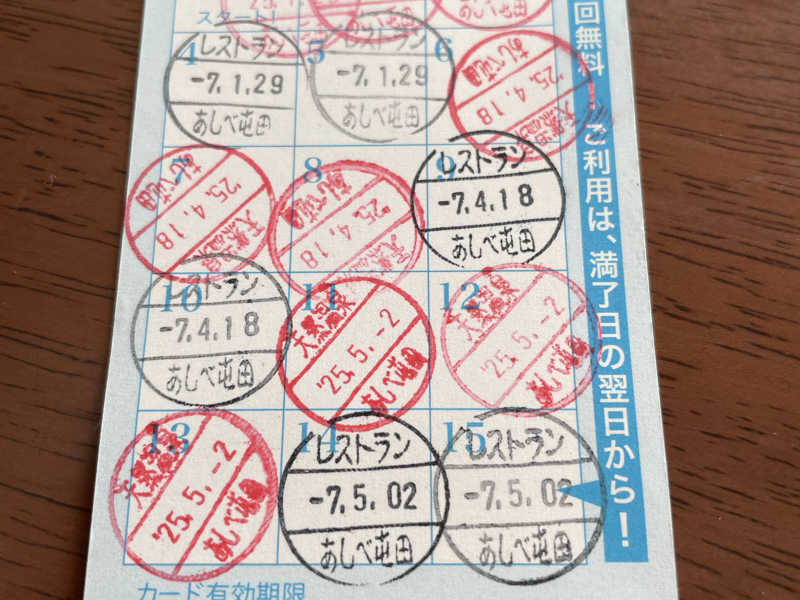 スタート!
4
レストラン
-7.1.29
あしべ屯田
5
レストラン
-7.1.29
あしべ屯田
6
天然温泉
'25.4.18
あしべ屯田
7
天然温泉
'25.4.18
あしべ屯田
8
天然温泉
'25.4.18
あしべ屯田
9
レストラン
-7.4.18
あしべ屯田
10
レストラン
-7.4.18
あしべ屯田
11
天然温泉
'25.5.-2
あしべ屯田
12
天然温泉
'25.5.-2
あしべ屯田
13
天然温泉
'25.5.-2
あしべ屯田
14
レストラン
-7.5.02
あしべ屯田
15
レストラン
-7.5.02
あしべ屯田
カード有効期限
回無料
ご利用は、満了日の翌日から!